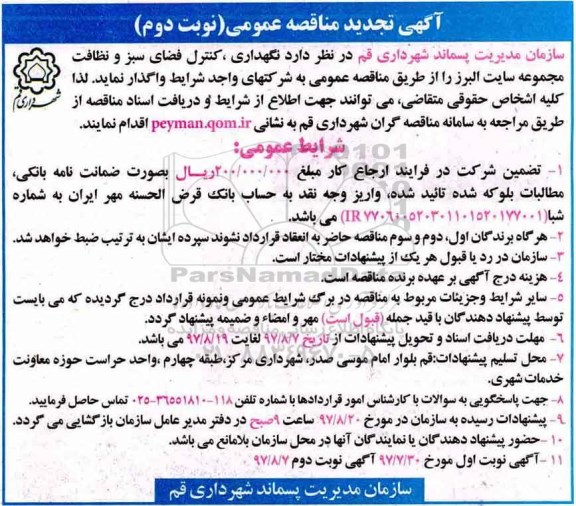 آگهی تجدید مناقصه عمومی(نوبت دوم)
سازمان مدیریت پسماند شهرداری قم در نظر دارد نگهداری ،کنترل فضای سبز و نظافت
مجموعه سایت البرز را از طریق مناقصه عمومی به شرکتهای واجد شرایط واگذار نماید. لذا
کلیه اشخاص حقوقی متقاضی، می توانند جهت اطلاع از شرایط و دریافت اسناد مناقصه از
طریق مراجعه به سامانه مناقصه گران شهرداری قم به نشانی peyman.qom.ir اقدام نمایند.
شهرداری قم
شرایط عمومی:
۱- تضمین شرکت در فرایند ارجاع کار مبلغ ۲۰۰/۰۰۰/۰۰۰ریال بصورت ضمانت نامه بانکی،
مطالبات بلوکه شده تائید شده، واریز وجه نقد به حساب بانک قرض الحسنه مهر ایران به شماره
شبا(IR ۷۷۰۶۰۰۵۲۰۳۰۱۱۰۱۵۲۰۱۷۷۰۰۱) می باشد.
۲- هرگاه برندگان اول، دوم و سوم مناقصه حاضر به انعقاد قرارداد نشوند سپرده ایشان به ترتیب ضبط خواهد شد.
۳- سازمان در رد یا قبول هر یک از پیشنهادات مختار است.
۴- هزینه درج آگهی بر عهده برنده مناقصه است.
۵- سایر شرایط وجزئیات مربوط به مناقصه در برگ شرایط عمومی ونمونه قرارداد درج گردیده که می بایست
توسط پیشنهاد دهندگان با قید جمله (قبول است) مهر و امضاء و ضمیمه پیشنهاد گردد.
۶- مهلت دریافت اسناد و تحویل پیشنهادات از تاریخ ۹۷/۸/۷ لغایت ۹۷/۸/۱۹ می باشد.
۷- محل تسلیم پیشنهادات:قم بلوار امام موسی صدر، شهرداری مرکز،طبقه چهارم ،واحد حراست حوزه معاونت
خدمات شهری.
۸- جهت پاسخگویی به سوالات با کارشناس امور قراردادها با شماره تلفن ۱۱۸-۳۶۵۵۱۸۱۰-۰۲۵ تماس حاصل فرمایید.
۹- پیشنهادات رسیده به سازمان در مورخ ۹۷/۸/۲۰ ساعت ۹صبح در دفتر مدیر عامل سازمان بازگشایی می گردد.
۱۰-حضور پیشنهاد دهندگان یا نمایندگان آنها در محل سازمان بلامانع می باشد.
۱۱-آگهی نوبت اول مورخ ۹۷/۷/۳۰ آگهی نوبت دوم ۹۷/۸/۷
سازمان مدیریت پسماند شهرداری قم
ParsNamadData